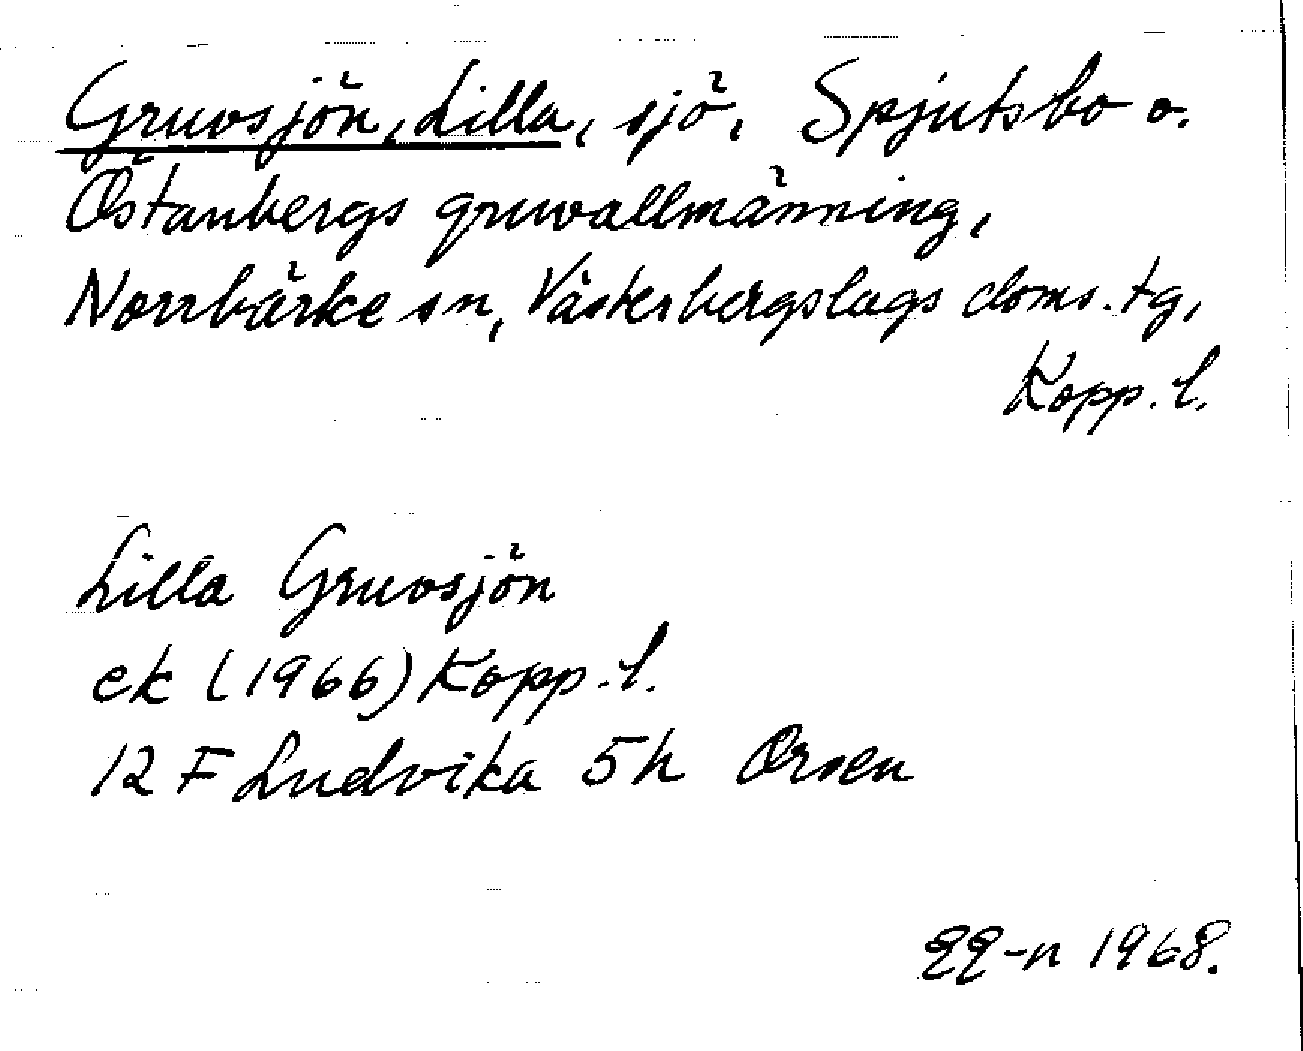 Gruvsjön, Lilla, sjö, Spjutsbo o.
Östanbergs gruvallmänning,
Norrbärke sn, Västerbergslags doms. tg,
Kopp. l.
Lilla Gruvsjön
ek (1966) Kopp. l.
12 F Ludvika 5h Orsen
1968.